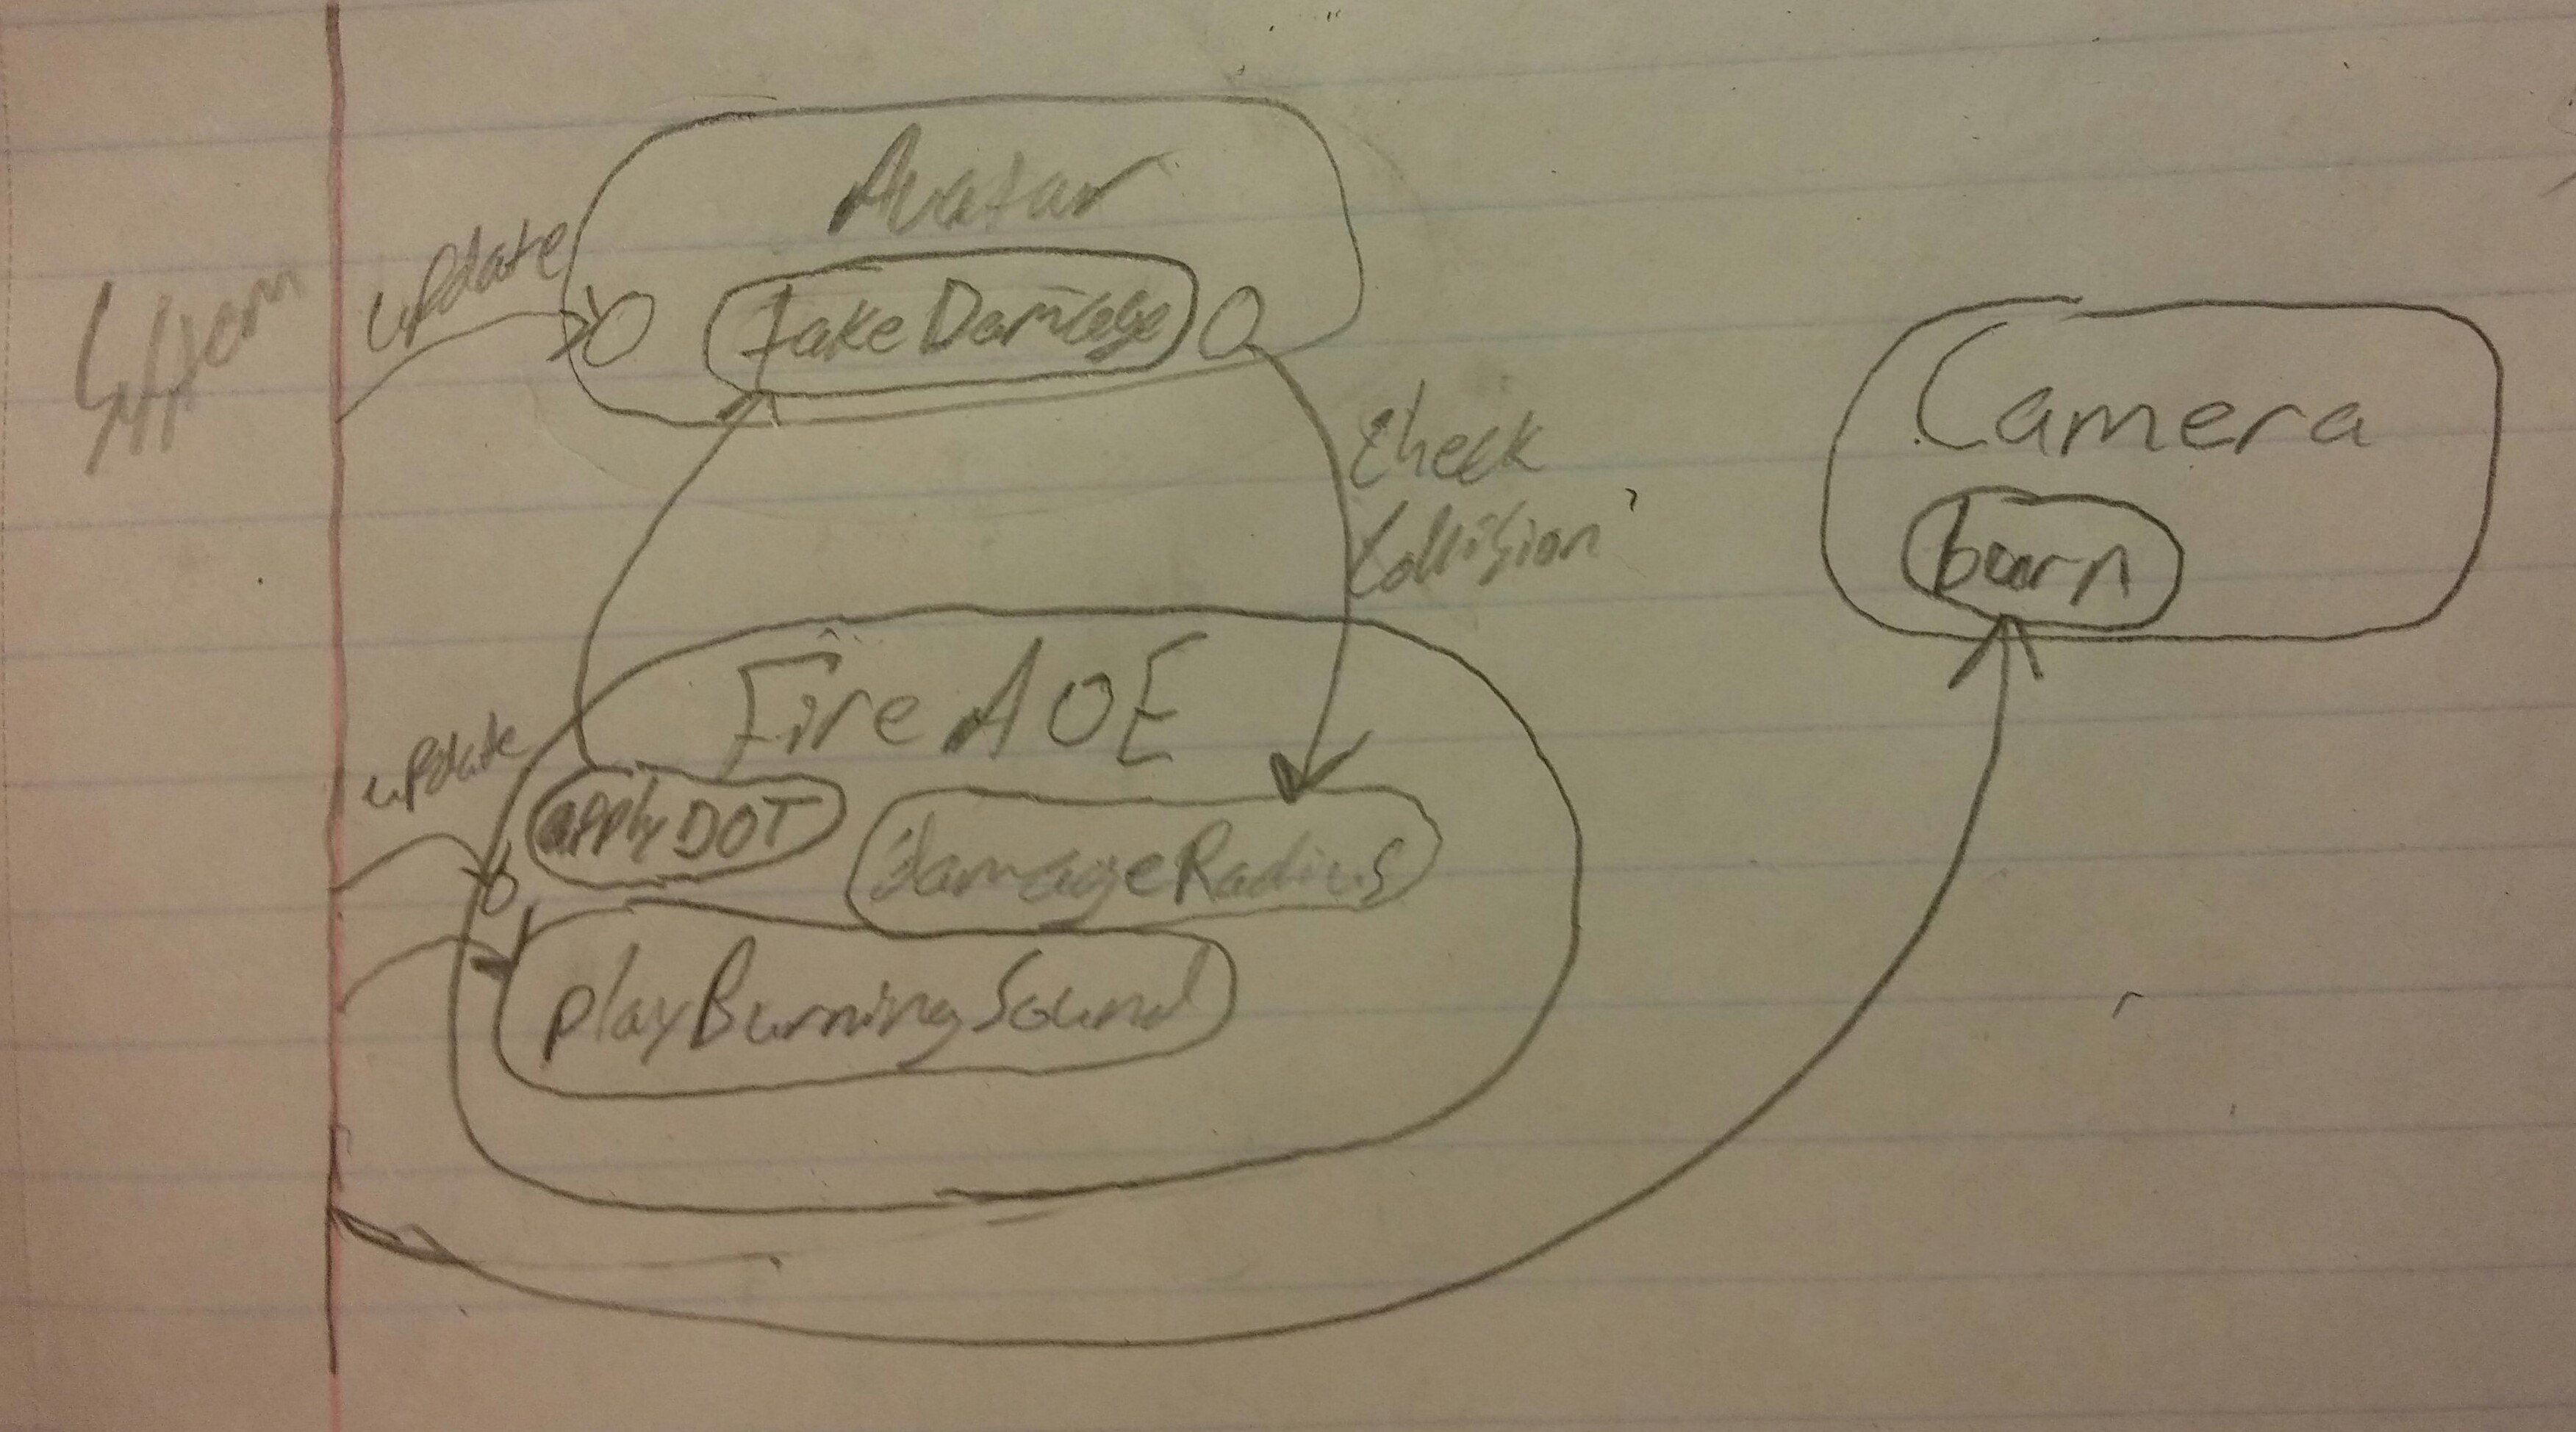 System
update
Avatar
takeDamage
check
Collision
Camera
burn
update
Fire AOE
applyDOT
damageRadius
playBurningSound